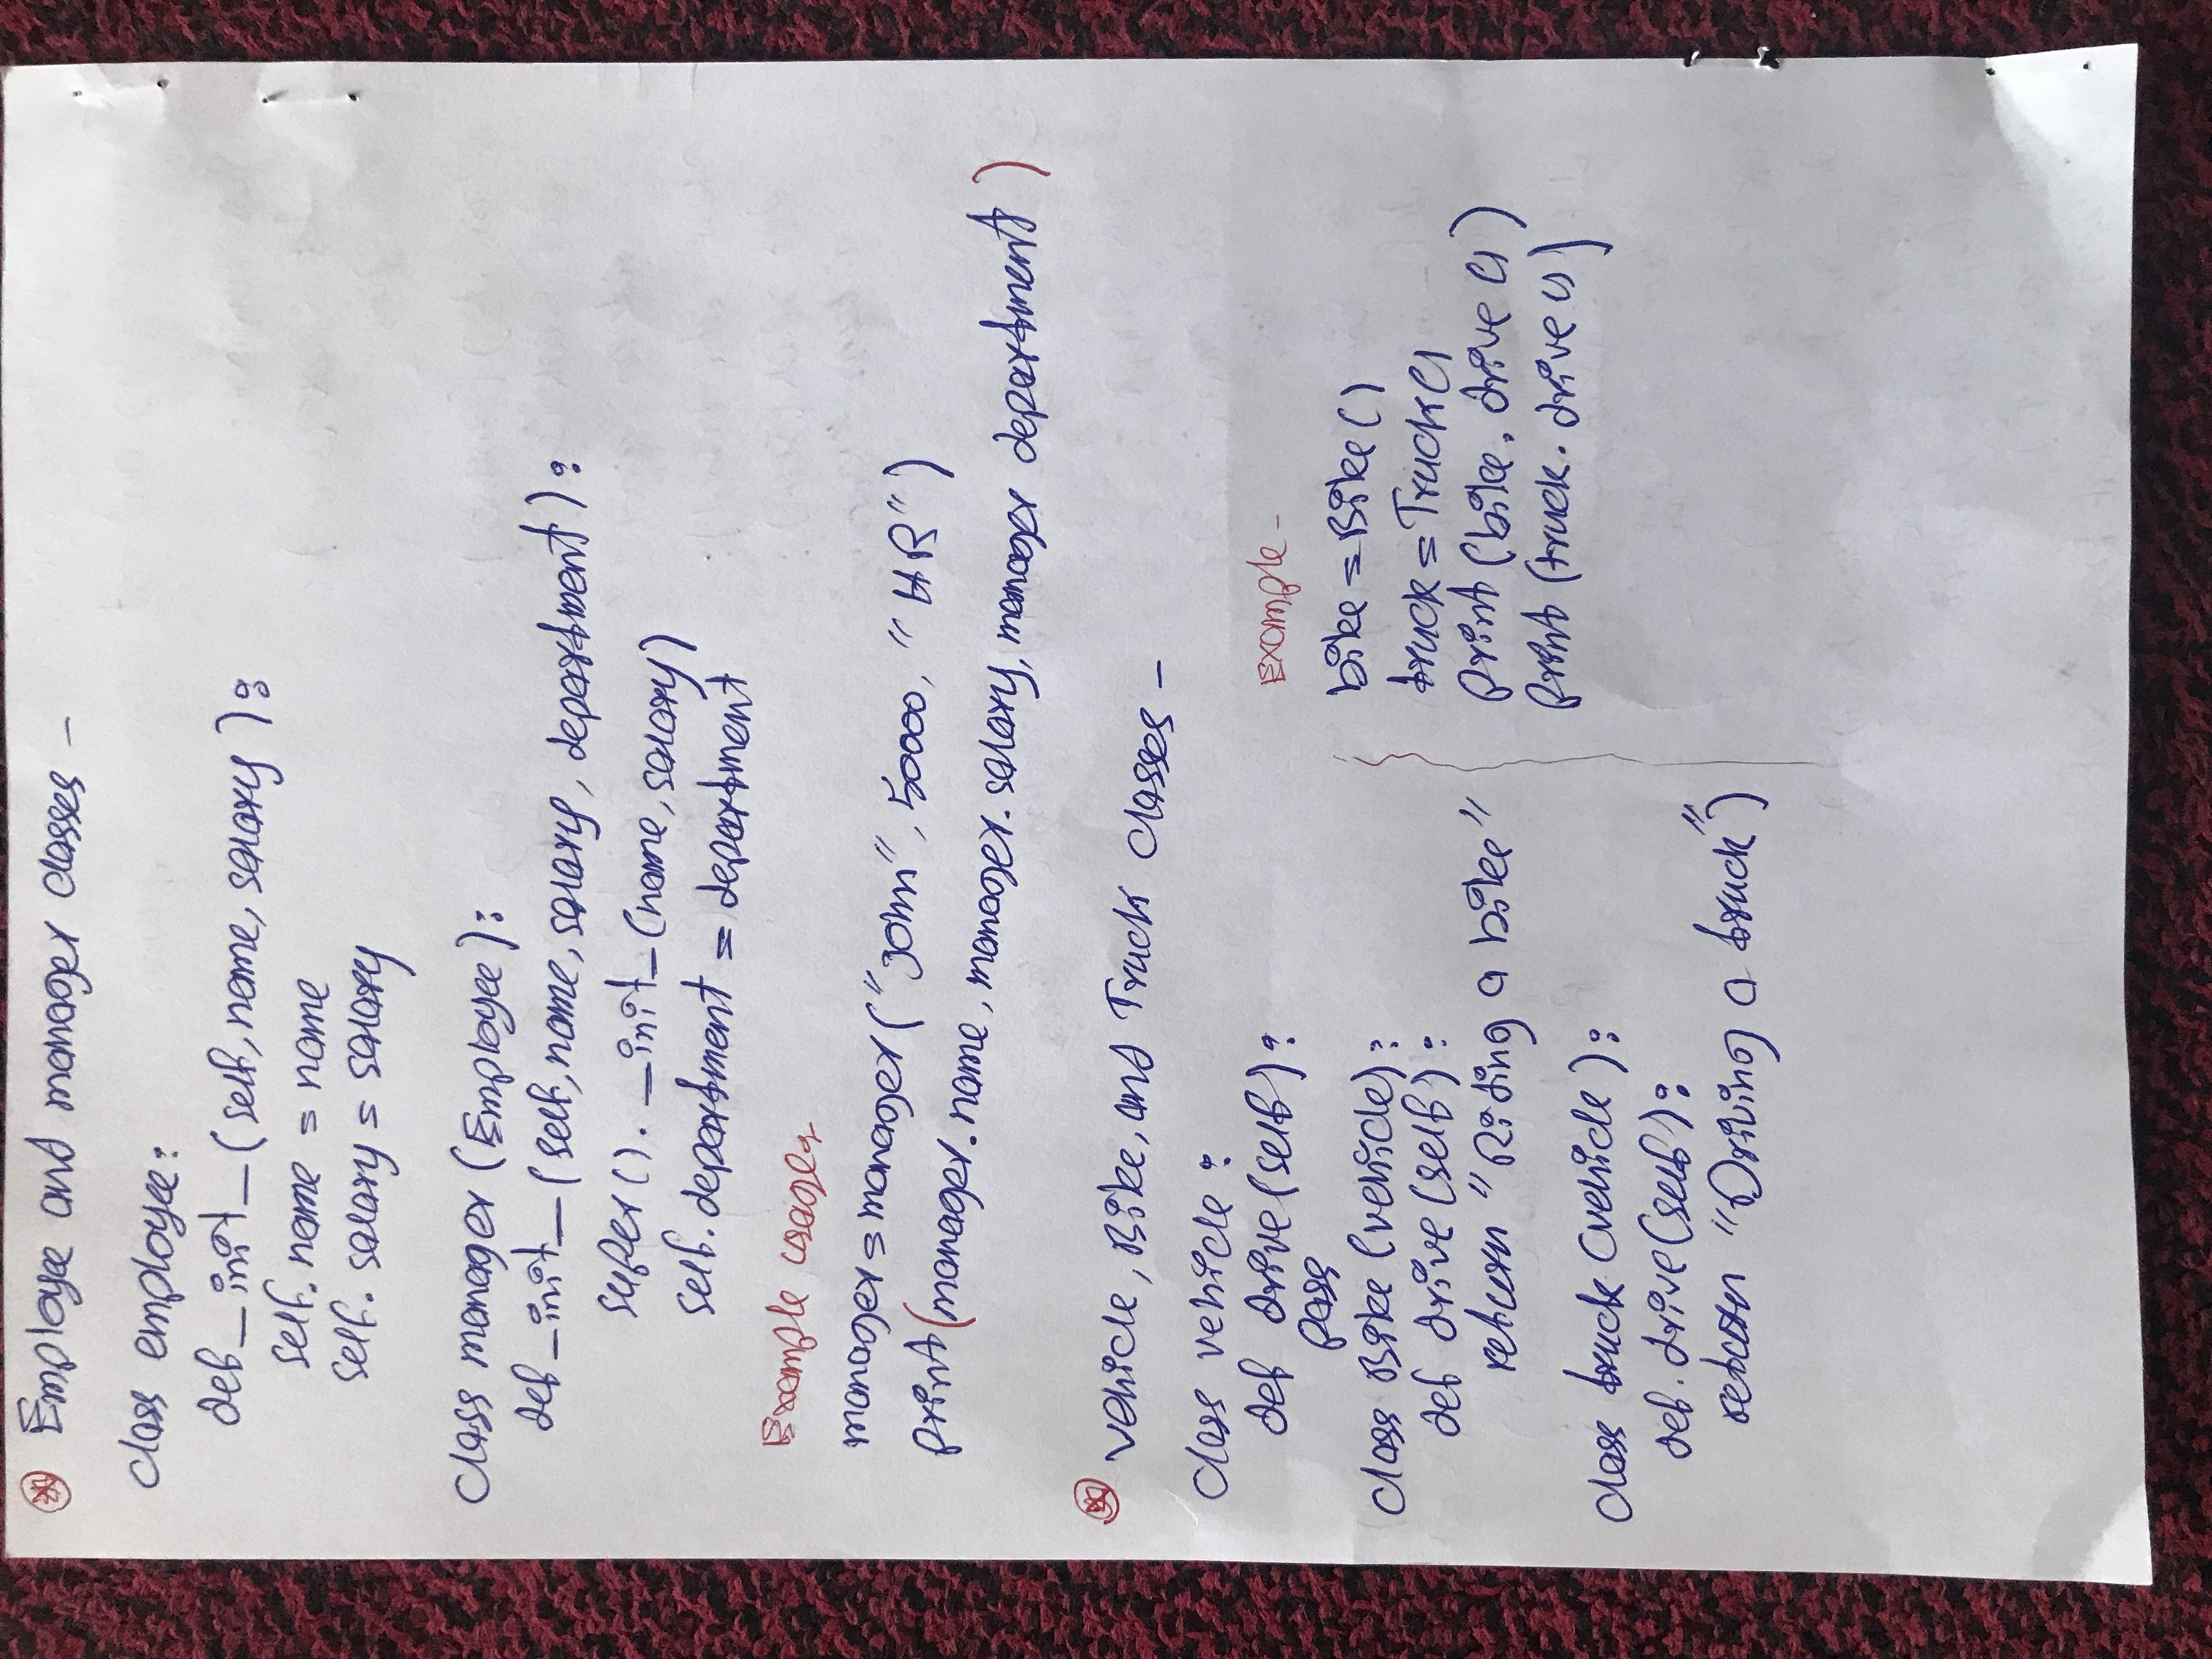 Employee and manager classes -
class employee:
def _init_ (self, name, salary):
self. name = name
self. salary = salary
class manager (Employee):
def _init_ (self, name, salary, department):
super(). _init_ (name, salary)
self. department = department
Example usage:
manager = manager ("John", 50000, "HR")
print(manager.name, manager.salary, manager department)
vehicle, Bike, and Truck classes -
class vehicle:
def drive (self):
pass
class Bike (vehicle):
def drive (self):
return "Riding a bike"
class truck (vehicle):
def. drive (self):
return "Driving a truck")
Example -
bike = Bike ()
truck = Truck ()
print (bike. drive ())
print (truck. drive ())